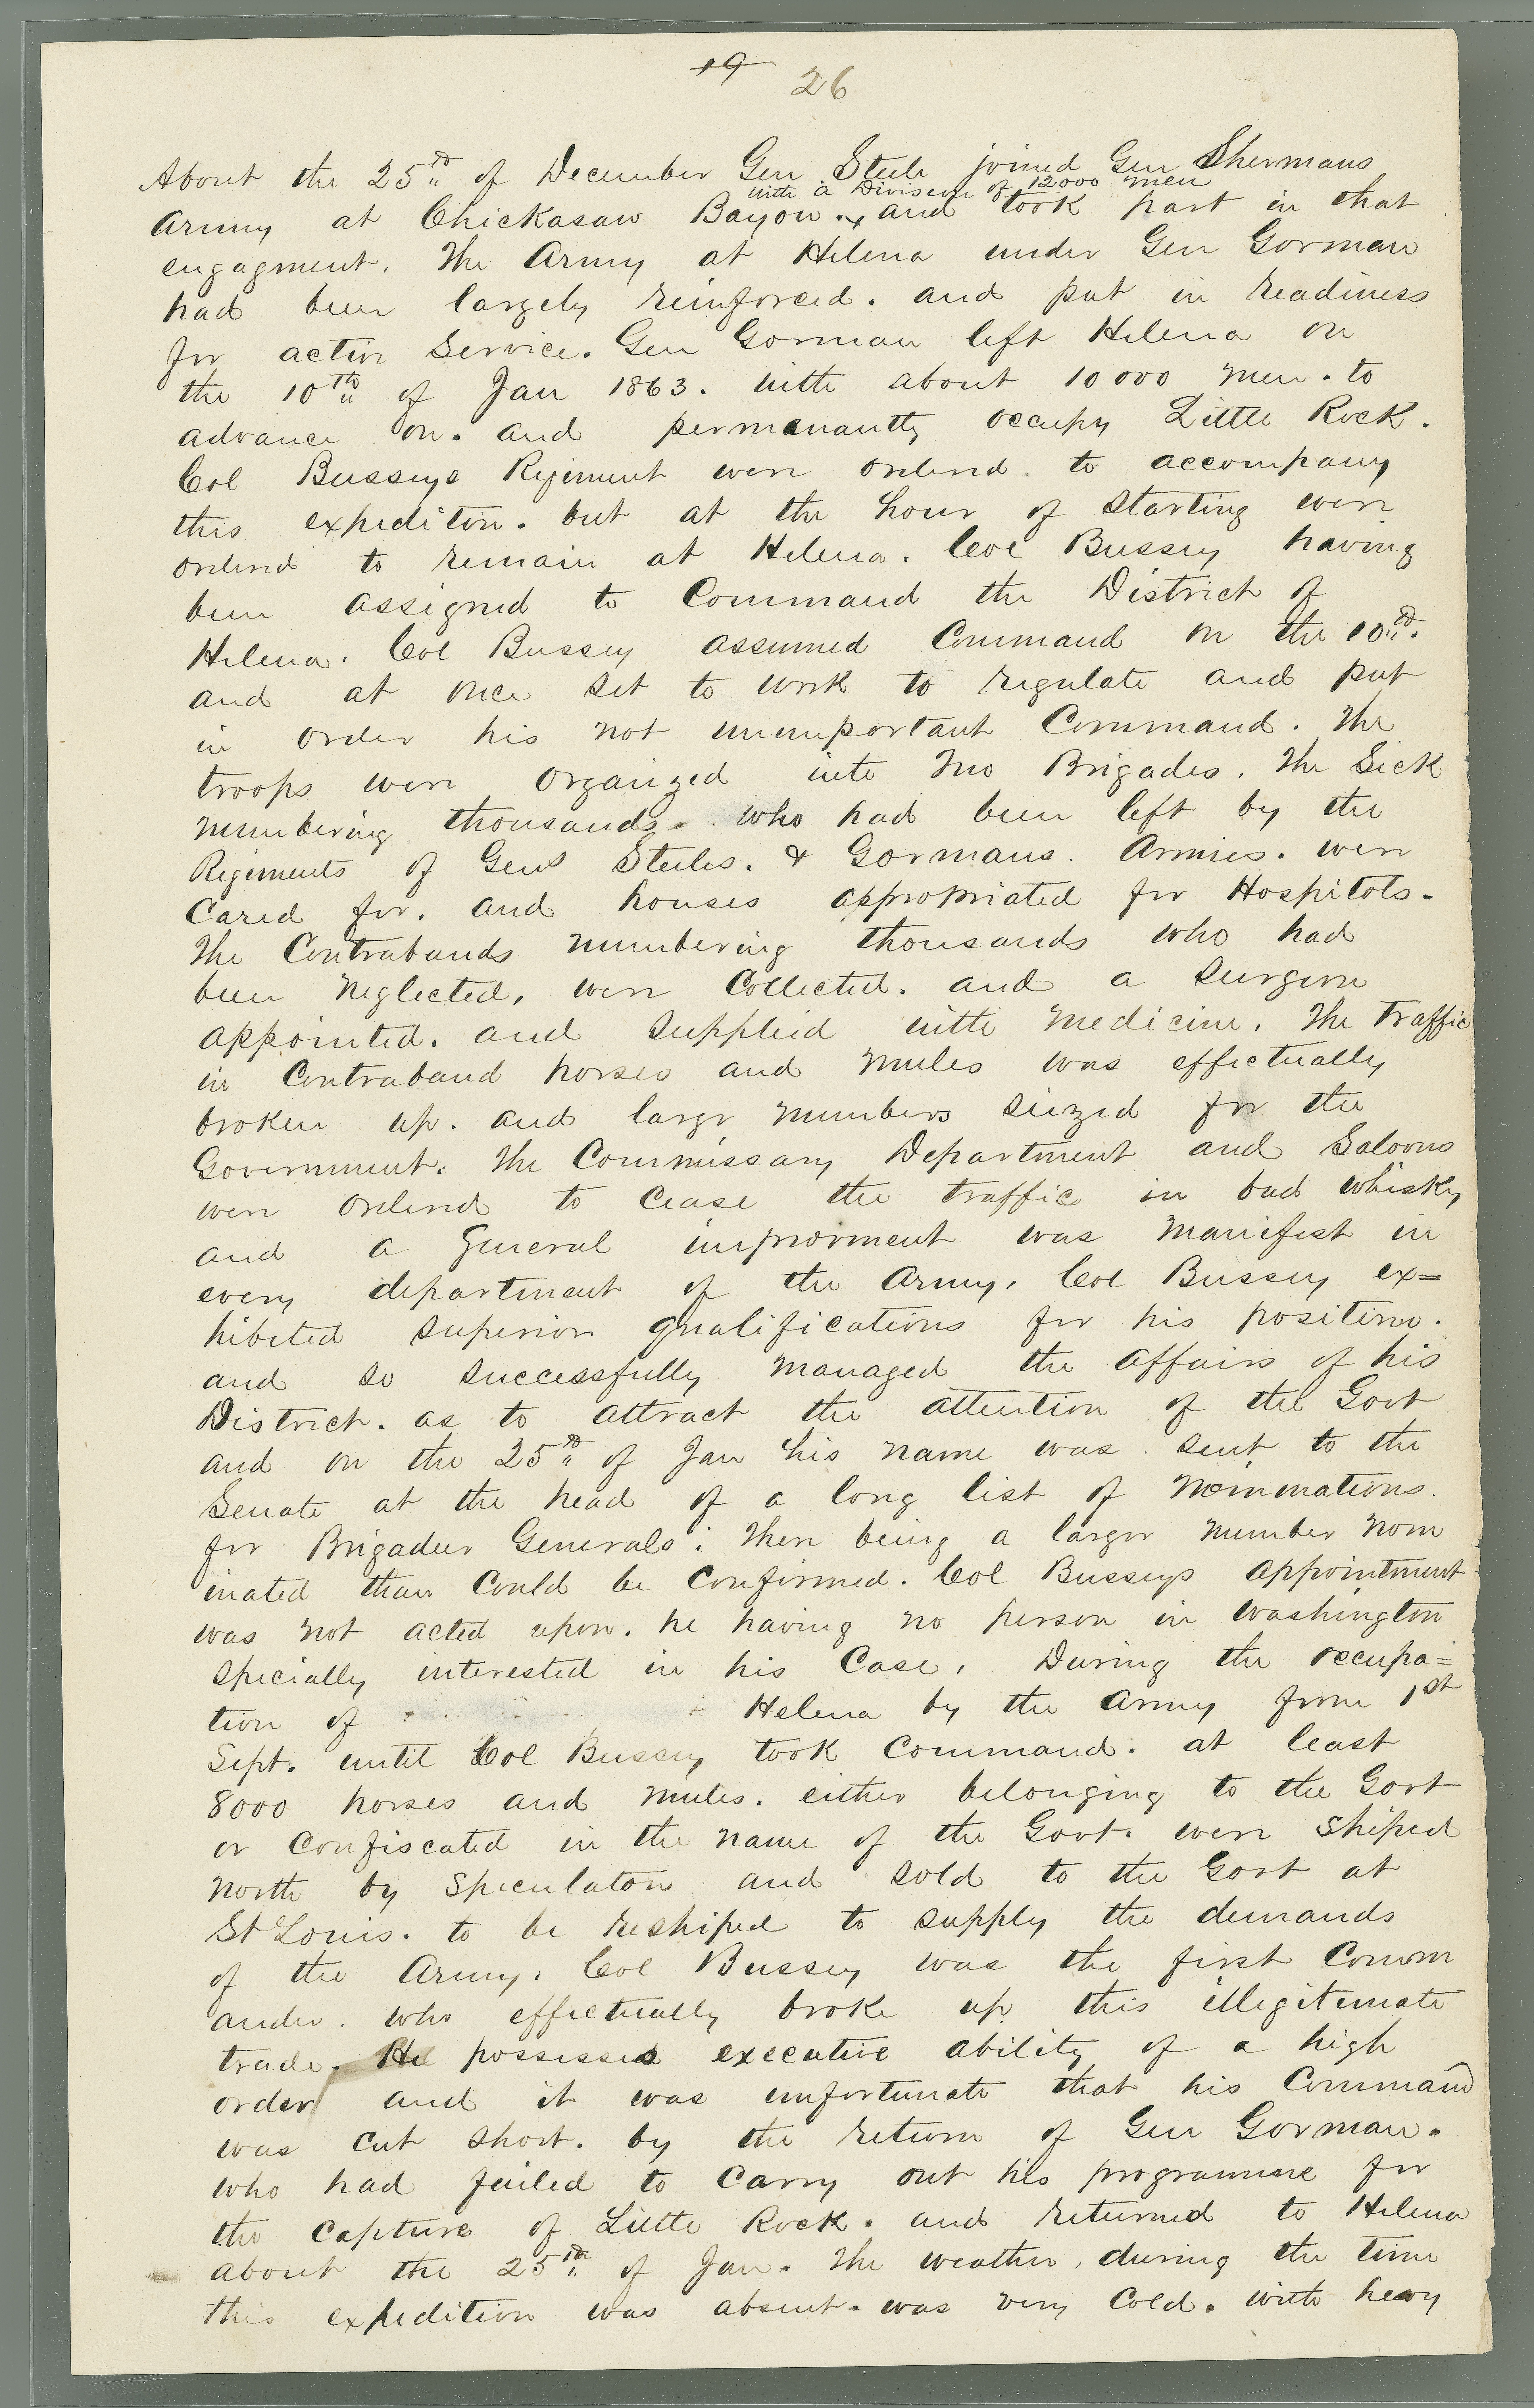 19 26
About the 25th of December Gen Steele joined Gen Shermans
with a Division of 12000 men
Army at Chickasaw Bayou. x and took part in that
engagment. The Army at Helena under Gen Gorman
had been largely reinforced. and put in readiness
for active Service. Gen Gorman left Helena on
the 10th of Jan 1863. with about 10000 men. to
advance on. and permanantly occupy Little Rock.
Col Busseys Regiment were ordered to accompany
this expedition. but at the hour of starting were
ordered to remain at Helena. Col Bussey having
been assigned to Command the District of
Helena. Col Bussey assumed Command on the 10th.
and at once set to work to regulate and put
in order his not unimportant Command. The
troops were organized into two Brigades. The Sick
numbering thousands who had been left by the
Regiments of Gens Steeles. & Gormans. Armies. were
Cared for. and houses appropriated for Hospitals.
The Contrabands numbering thousands who had
been neglected, were Collected. and a surgeon
appointed. and supplied with medicine. The traffic
in Contraband horses and mules was effectually
broken up. and large numbers siezed for the
Government. The Commissary Department and Saloons
were ordered to cease the traffic in bad whisky
and a general improvment was manifest in
every department of the Army. Col Bussey ex=
hibited superior qualifications for his position.
and so successfully managed the affairs of his
District. as to attract the attention of the Govt
and on the 25th of Jan his name was sent to the
Senate at the head of a long list of nominations.
for Brigadier Generals. There being a larger number nom
inated than Could be Confirmed. Col Busseys appointment
was not acted upon. he having no person in Washington
specially interested in his Case. During the occupa=
tion of Helena by the Army from 1st
Sept. until Col Bussey took Command. at least
8000 horses and mules. either belonging to the Govt
or Confiscated in the name of the Govt. were shiped
north by speculators and sold to the Govt at
St Louis. to be reshiped to supply the demands
of the Army. Col Bussey was the first Comm
ander. who effectually broke up this illegitemate
trade. He possesses executive ability of a high
order and it was unfortunate that his Command
was cut short. by the return of Gen Gorman.
who had failed to Carry out his programme for
the Capture of Little Rock. and returned to Helena
about the 25th of Jan. The weather, during the time
this expedition was absent. was very Cold. with heavy